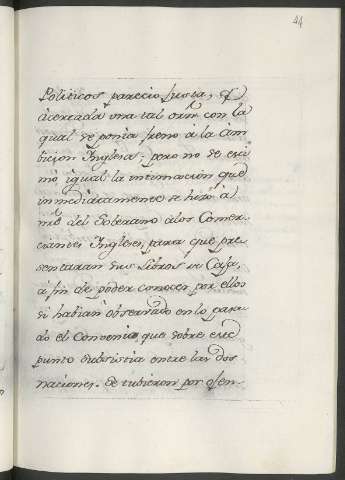 44
Politicos parecio justa, y
acertada una tal orñ con la
qual se ponia freno à la Am
bicion Inglesa; pero no se esti
mò igual la intimacion que
inmediatamente se hizo à
nrê del Soberano àlos Comer
ciantes Ingleses, para que pre
sentaran sus Libros de Caja,
a fin de poder conocer por ellos
si habian observado en lo pasa
do el Convenio que sobre este
punto subsistia entre las dos
naciones. Se tubieron por ofen